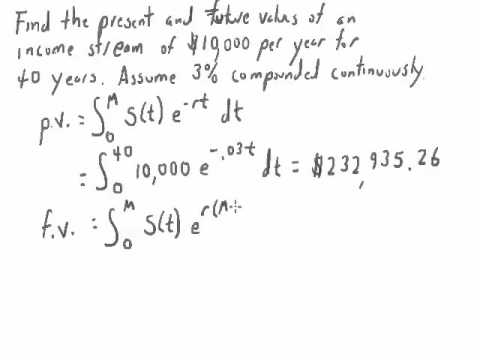 Find the present and future value of an
income stream of $10,000 per year for
40 years. Assume 3% compounded continuously.
p.v. = ∫₀ᴹ S(t) e^-rt dt
= ∫₀⁴⁰ 10,000 e^-.03t dt = $232,935.26
f.v. = ∫₀ᴹ S(t) e^r(M-